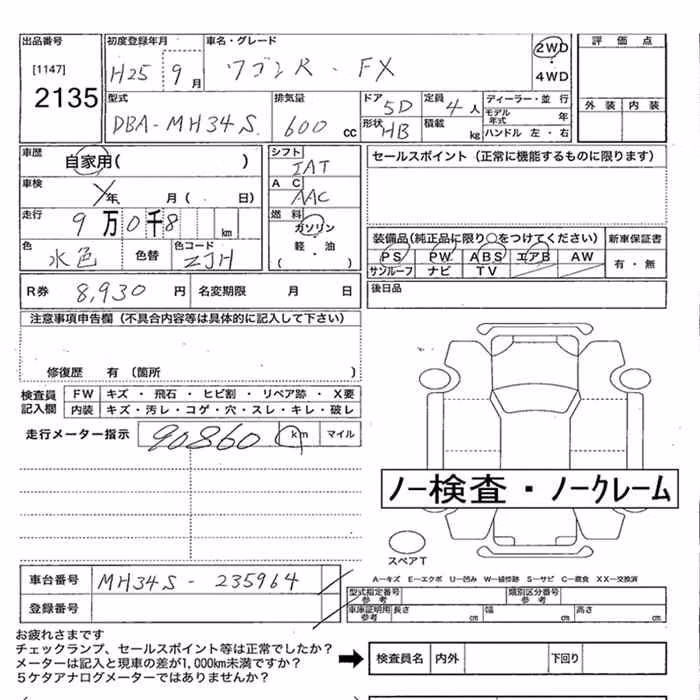 出品番号 初度登録年月 車名・グレード 評価点
[1147] H25 9月 ワゴンR・FX 2WD・4WD
2135
型式 排気量 ドア 5D 定員 4人 ディーラー・並行 外装 内装
DBA-MH34S 600cc 形状 HB 積載 kg モデル年式 年
ハンドル 左・右
車歴 自家用( ) シフト IAT セールスポイント(正常に機能するものに限ります)
車検 年 月( 日) AC AAC
走行 9万0千8 km 燃料 ガソリン 軽・油 ( )
装備品(純正品に限り○をつけてください) 新車保証書
色 水色 色替 色コード ZJH PS PW ABS エアB AW 有・無
サンルーフ ナビ TV
R券 8,930円 名変期限 月 日 後日品
注意事項申告欄(不具合内容等は具体的に記入して下さい)
修復歴 有(箇所 )
検査員記入欄 FW キズ・飛石・ヒビ割・リペア跡・X要
内装 キズ・汚レ・コゲ・穴・スレ・キレ・破レ
走行メーター指示 90860 km マイル
ノー検査・ノークレーム
スペアT
A―キズ E―エクボ U―凹み W―補修跡 S―サビ C―腐食 XX―交換済
車台番号 MH34S-235964 型式指定番号参考 類別区分番号参考
登録番号 車庫証明用参考 長さ cm 幅 cm 高さ cm
お疲れさまです
チェックランプ、セールスポイント等は正常でしたか?
メーターは記入と現車の差が1,000km未満ですか?
5ケタアナログメーターではありませんか?
検査員名 内外 下回り